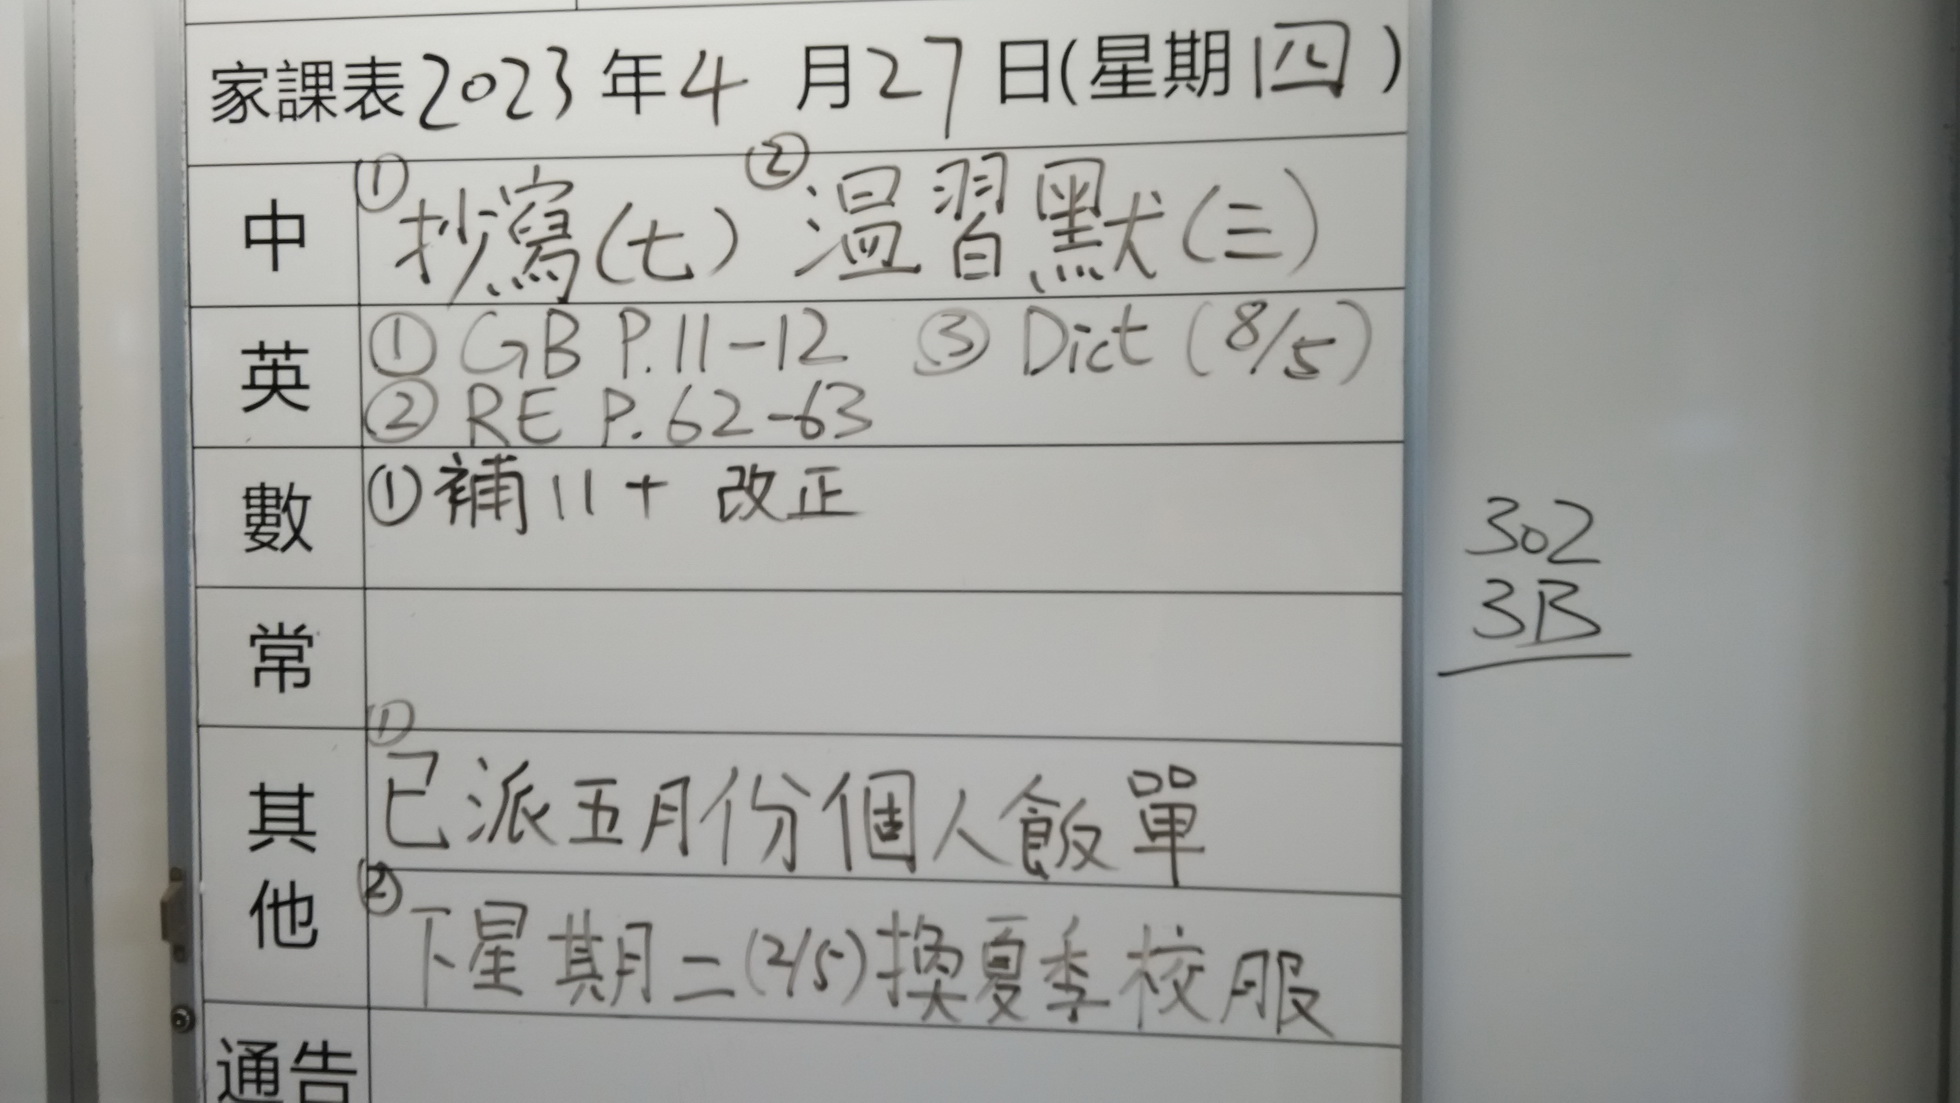 家課表2023年4月27日(星期四)
中 ①抄寫(七) ②溫習默(三)
英 ①GB P.11-12 ③Dict (8/5)
②RE P.62-63
數 ①補11+改正
常
其他 ①已派五月份個人飯單
②下星期二(2/5)換夏季校服
通告
302
3B